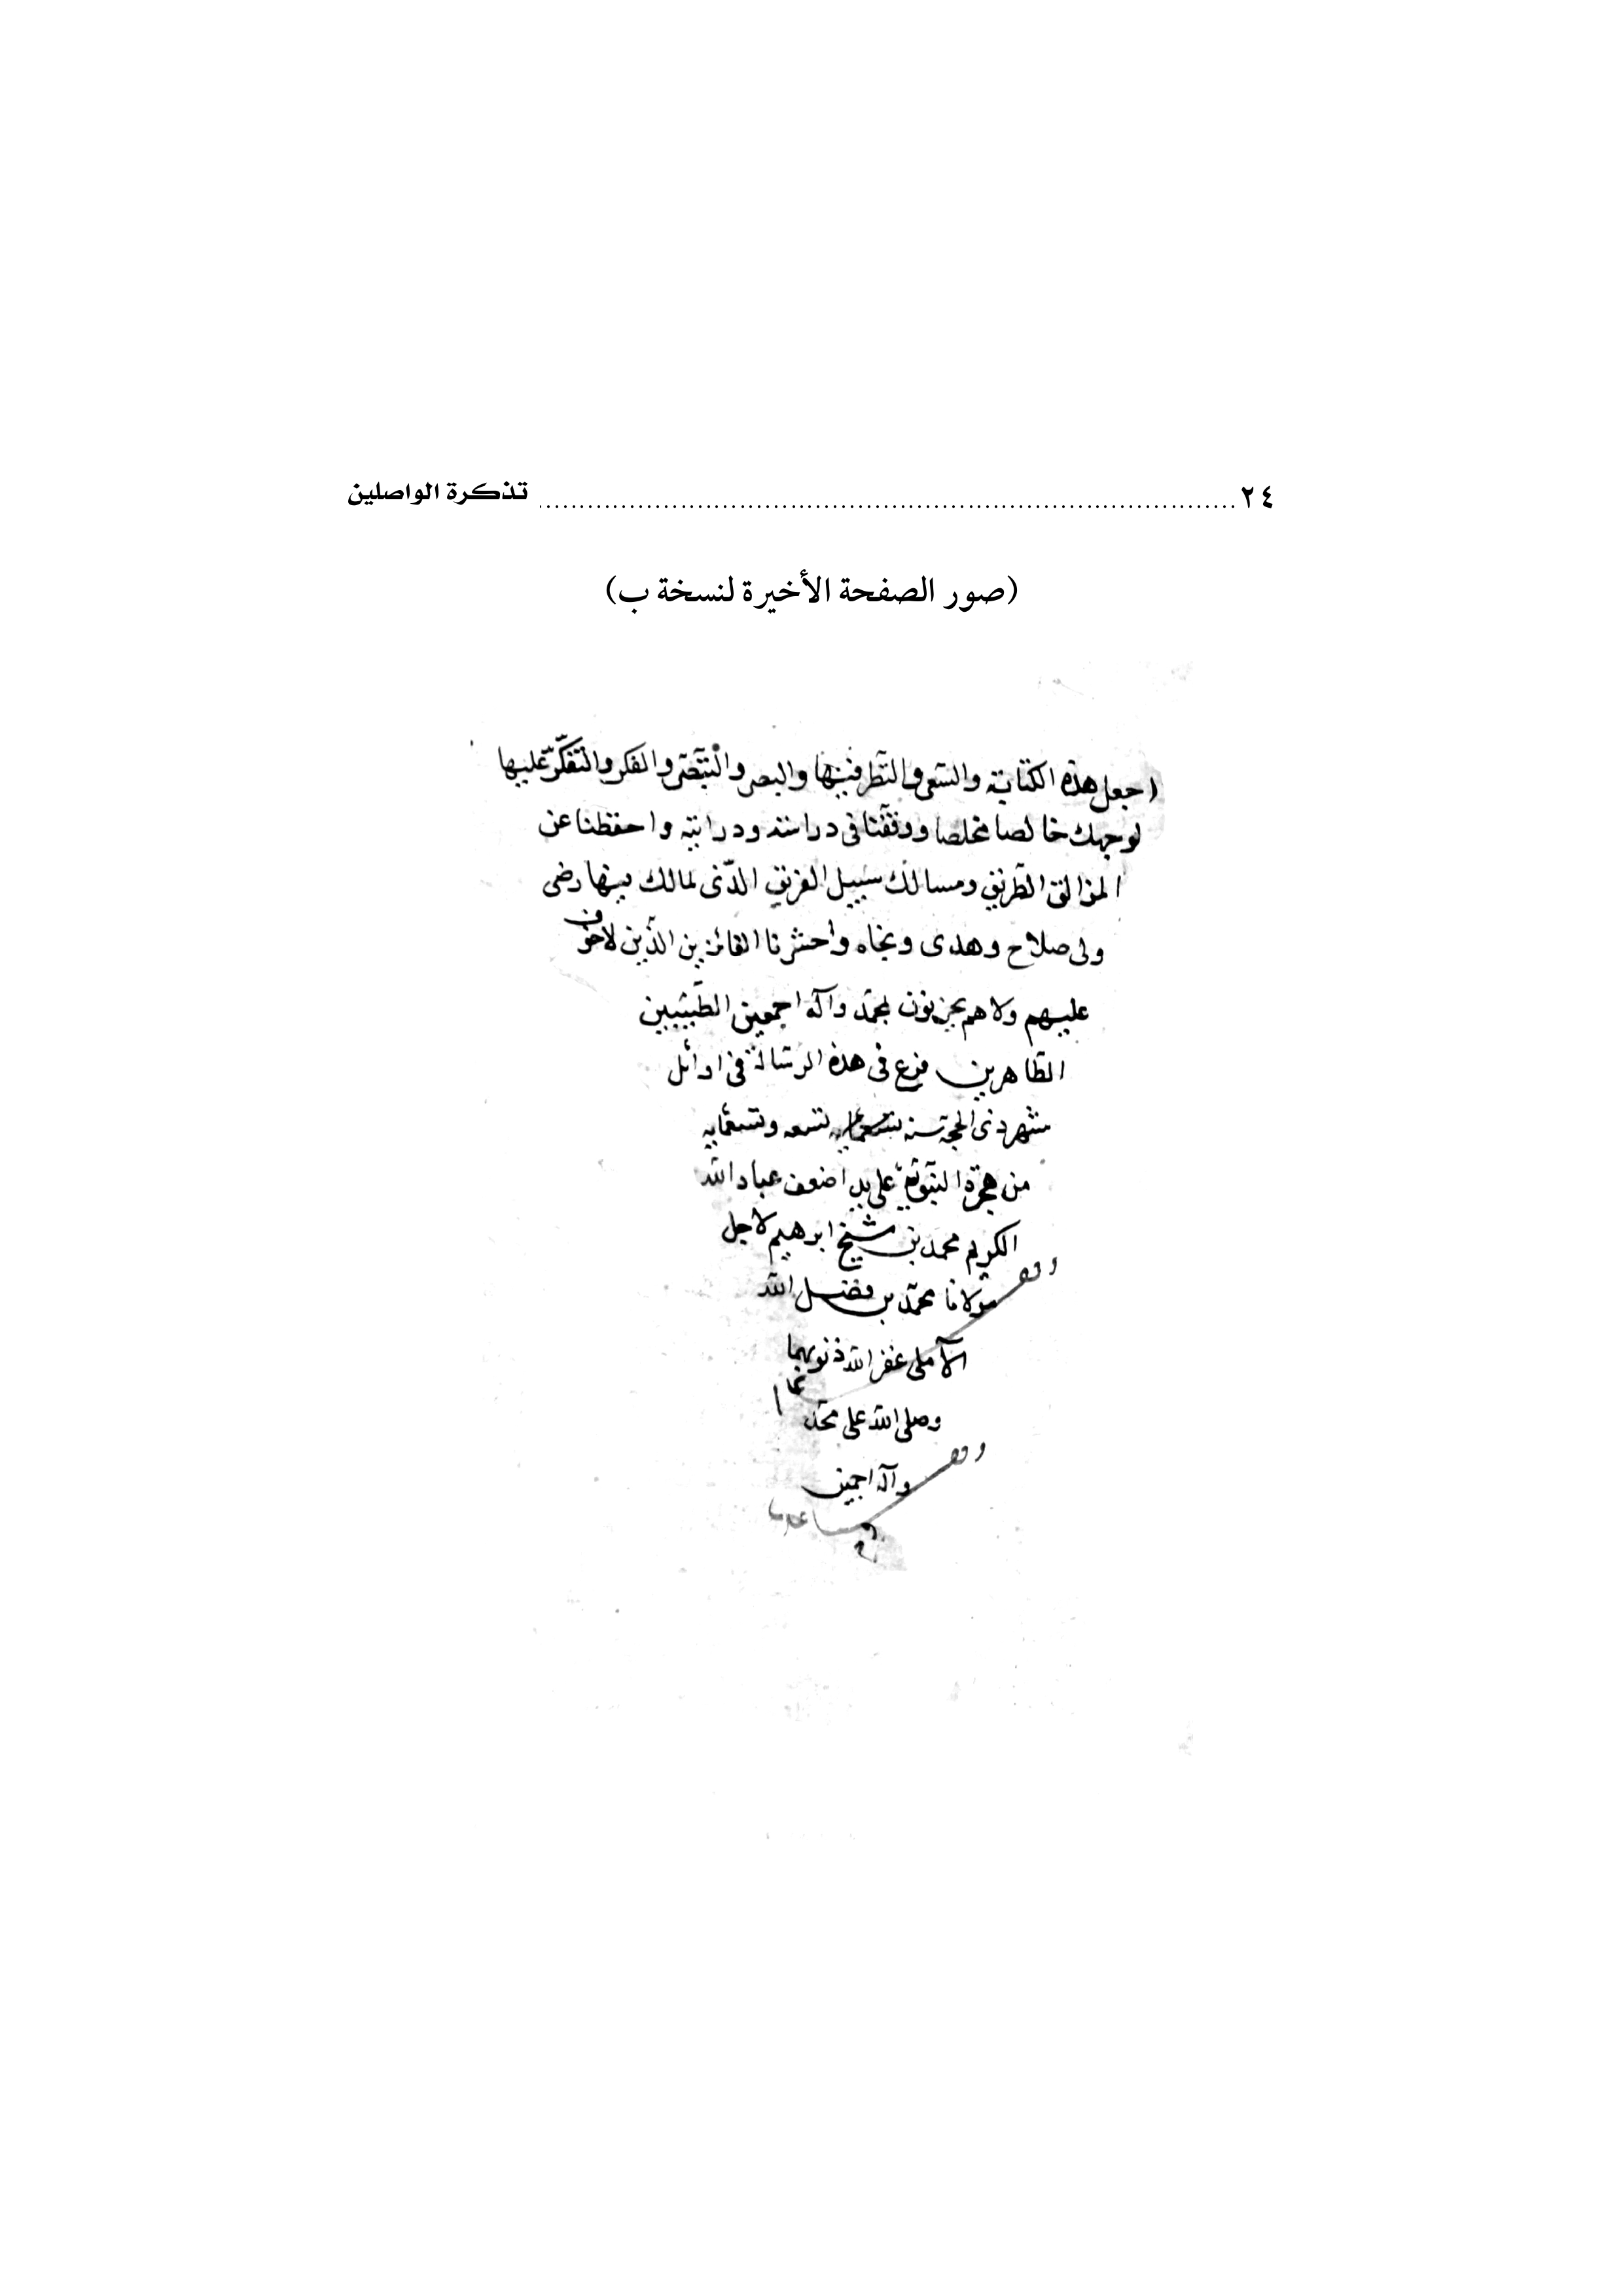 ٢٤ ........................ تذكرة الواصلين
(صور الصفحة الأخيرة لنسخة ب)
اجعل هذه الكتابة والسعى والنظر فيها والبصر والتبصّر والفكر والتفكّر عليها
لوجهك خالصا مخلصا ووفّقنا فى دراسته ودرايته واحفظنا عن
المزالق الطريق ومسالك سبيل الفريق الذى لمالك فيها رضى
ولى صلاح وهدى ونجاه واحشرنا الفائزين الذين لا خوف
عليهم ولا هم يحزنون بمحمّد وآله اجمعين الطيّبيين
الطاهرين فرغ فى هذه الرسالة فى اوائل
شهر ذى الحجة سنة تسعمايه تسعه وتسعمايه
من هجرة النبويّة على يد اضعف عباد الله
الكريم محمد بن شيخ ابرهيم لاجل
مولانا محمّد بن فضل الله
الآملى غفر الله ذنوبهما
وصلى الله على محمّد
وآله اجمعين